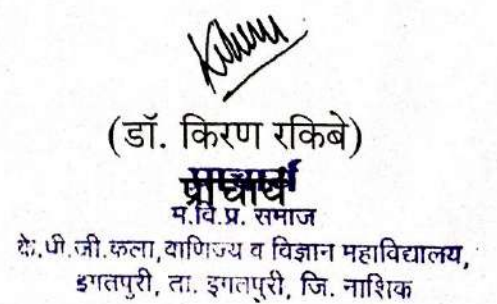 (डॉ. किरण रकिबे)
प्राचार्य
म.वि.प्र. समाज
के.पी.जी.कला,वाणिज्य व विज्ञान महाविद्यालय,
इगतपुरी, ता. इगतपुरी, जि. नाशिक